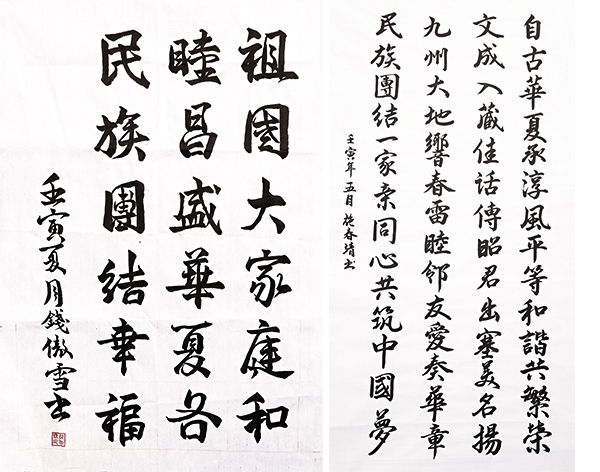 祖國大家庭和
睦昌盛華夏各
民族團結幸福
壬寅夏月錢傲雪书
自古華夏承淳風平等和諧共繁榮
文成入藏佳話傳昭君出塞美名揚
九州大地響春雷睦邻友愛奏華章
民族團結一家亲同心共筑中國夢
壬寅年五月施春靖书